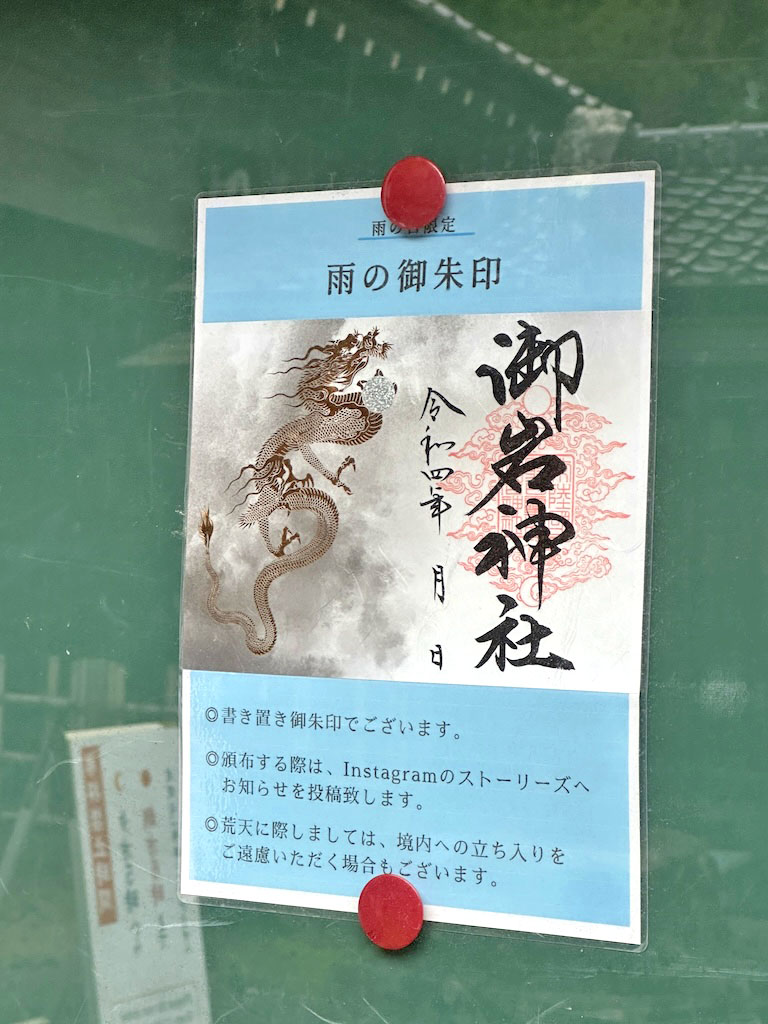 雨の日限定
雨の御朱印
御岩神社
令和四年 月 日
◎書き置き御朱印でございます。
◎頒布する際は、Instagramのストーリーズへ
お知らせを投稿致します。
◎荒天に際しましては、境内への立ち入りを
ご遠慮いただく場合もございます。